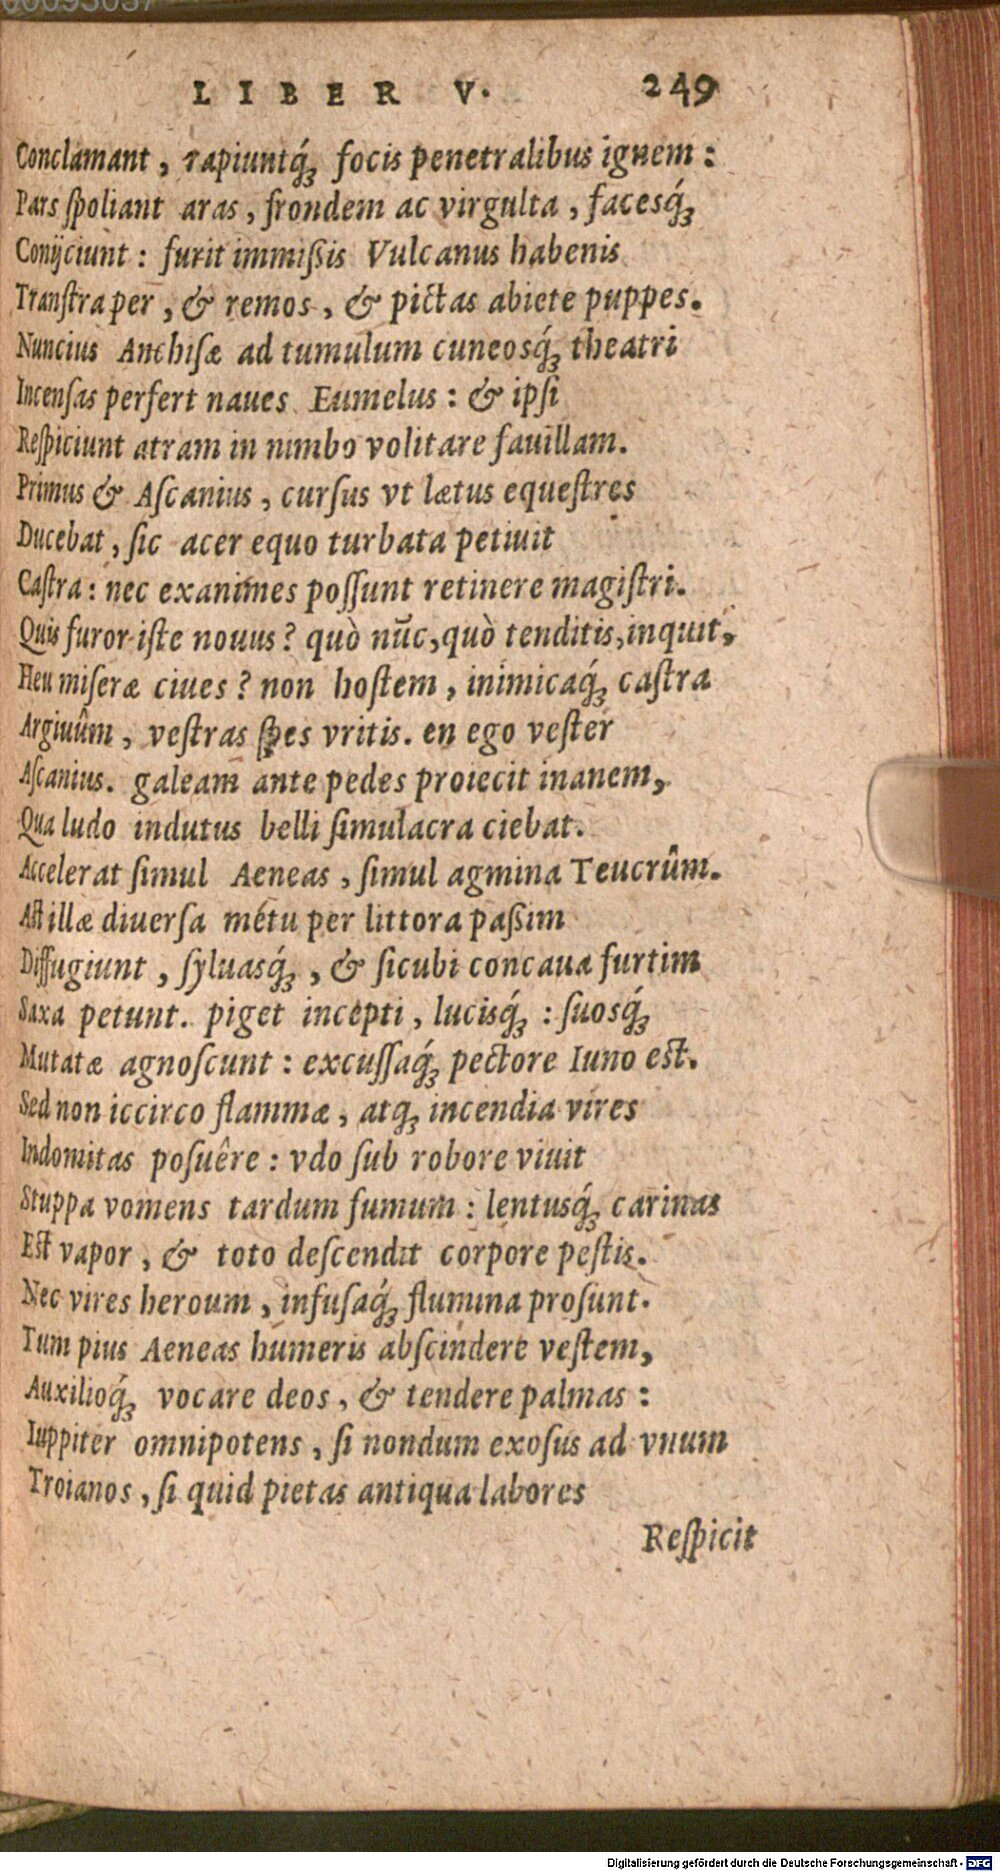 LIBER V. 249
Conclamant, rapiuntq́ꝫ focis penetralibus ignem:
Pars ſpoliant aras, frondem ac virgulta, facesq́ꝫ
Conijciunt: furit immißis Vulcanus habenis
Tranſtra per, & remos, & pictas abiete puppes.
Nuncius Anchiſæ ad tumulum cuneosq́ꝫ theatri
Incenſas perfert naues Eumelus: & ipſi
Reſpiciunt atram in nimbo volitare fauillam.
Primus & Aſcanius, curſus vt lætus equeſtres
Ducebat, ſic acer equo turbata petiuit
Caſtra: nec exanimes poſſunt retinere magiſtri.
Quis furor iſte nouus? quò nũc, quò tenditis, inquit,
Heu miſeræ ciues? non hoſtem, inimicaq́ꝫ caſtra
Argiuûm, veſtras ſpes vritis. en ego veſter
Aſcanius. galeam ante pedes proiecit inanem,
Qua ludo indutus belli ſimulacra ciebat.
Accelerat ſimul Aeneas, ſimul agmina Teucrûm.
Aſt illæ diuerſa métu per littora paßim
Diffugiunt, ſyluasq́ꝫ, & ſicubi concaua furtim
Saxa petunt. piget incepti, lucisq́ꝫ: ſuosq́ꝫ
Mutatæ agnoſcunt: excuſſaq́ꝫ pectore Iuno eſt.
Sed non iccirco flammæ, atqꝫ incendia vires
Indomitas poſuêre: vdo ſub robore viuit
Stuppa vomens tardum fumum: lentusq́ꝫ carinas
Eſt vapor, & toto deſcendit corpore peſtis.
Nec vires heroum, infuſaq́ꝫ flumina proſunt.
Tum pius Aeneas humeris abſcindere veſtem,
Auxilioq́ꝫ vocare deos, & tendere palmas:
Iuppiter omnipotens, ſi nondum exoſus ad vnum
Troianos, ſi quid pietas antiqua labores
Reſpicit
Digitalisierung gefördert durch die Deutsche Forschungsgemeinschaft - DFG